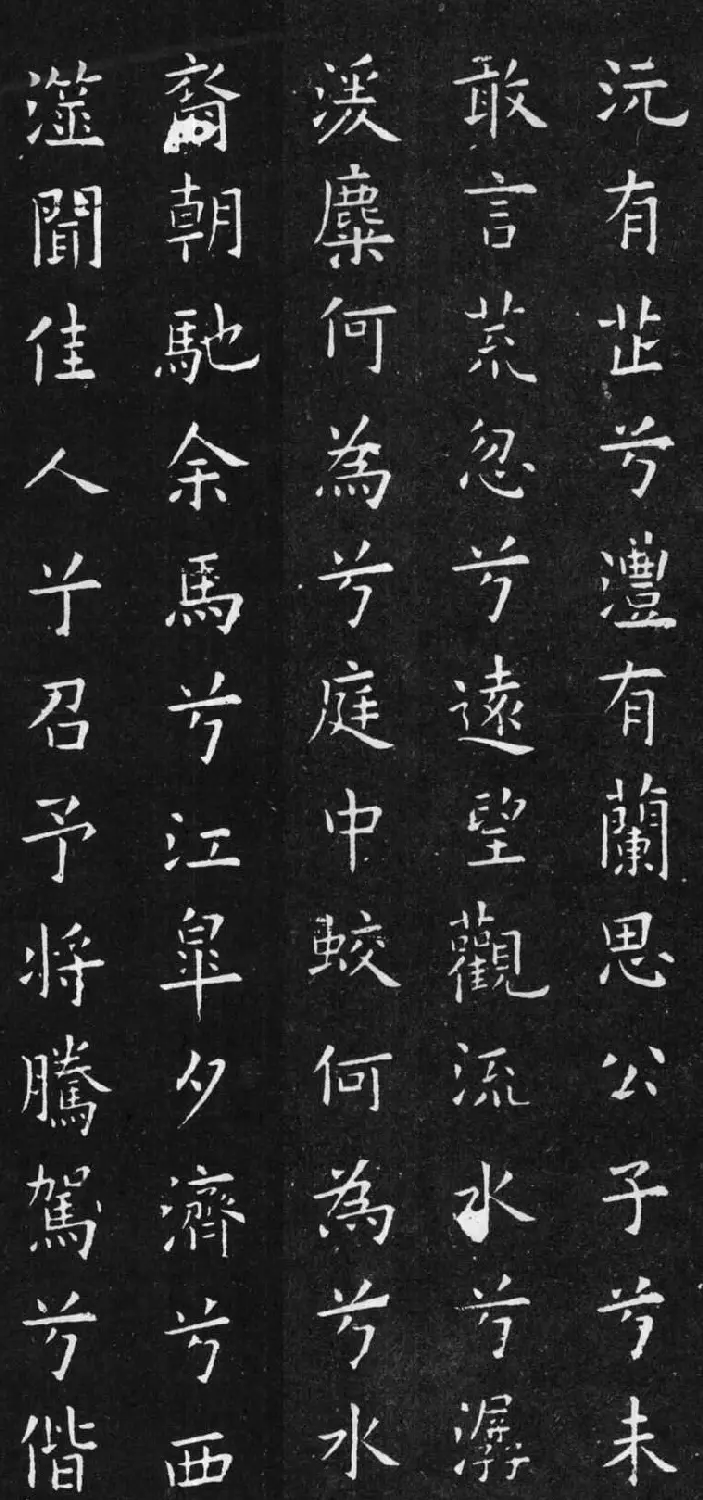 沅有芷兮澧有蘭思公子兮未
敢言荒忽兮遠望觀流水兮潺
湲麋何為兮庭中蛟何為兮水
裔朝馳余馬兮江皐夕濟兮西
澨聞佳人兮召予将騰駕兮偕